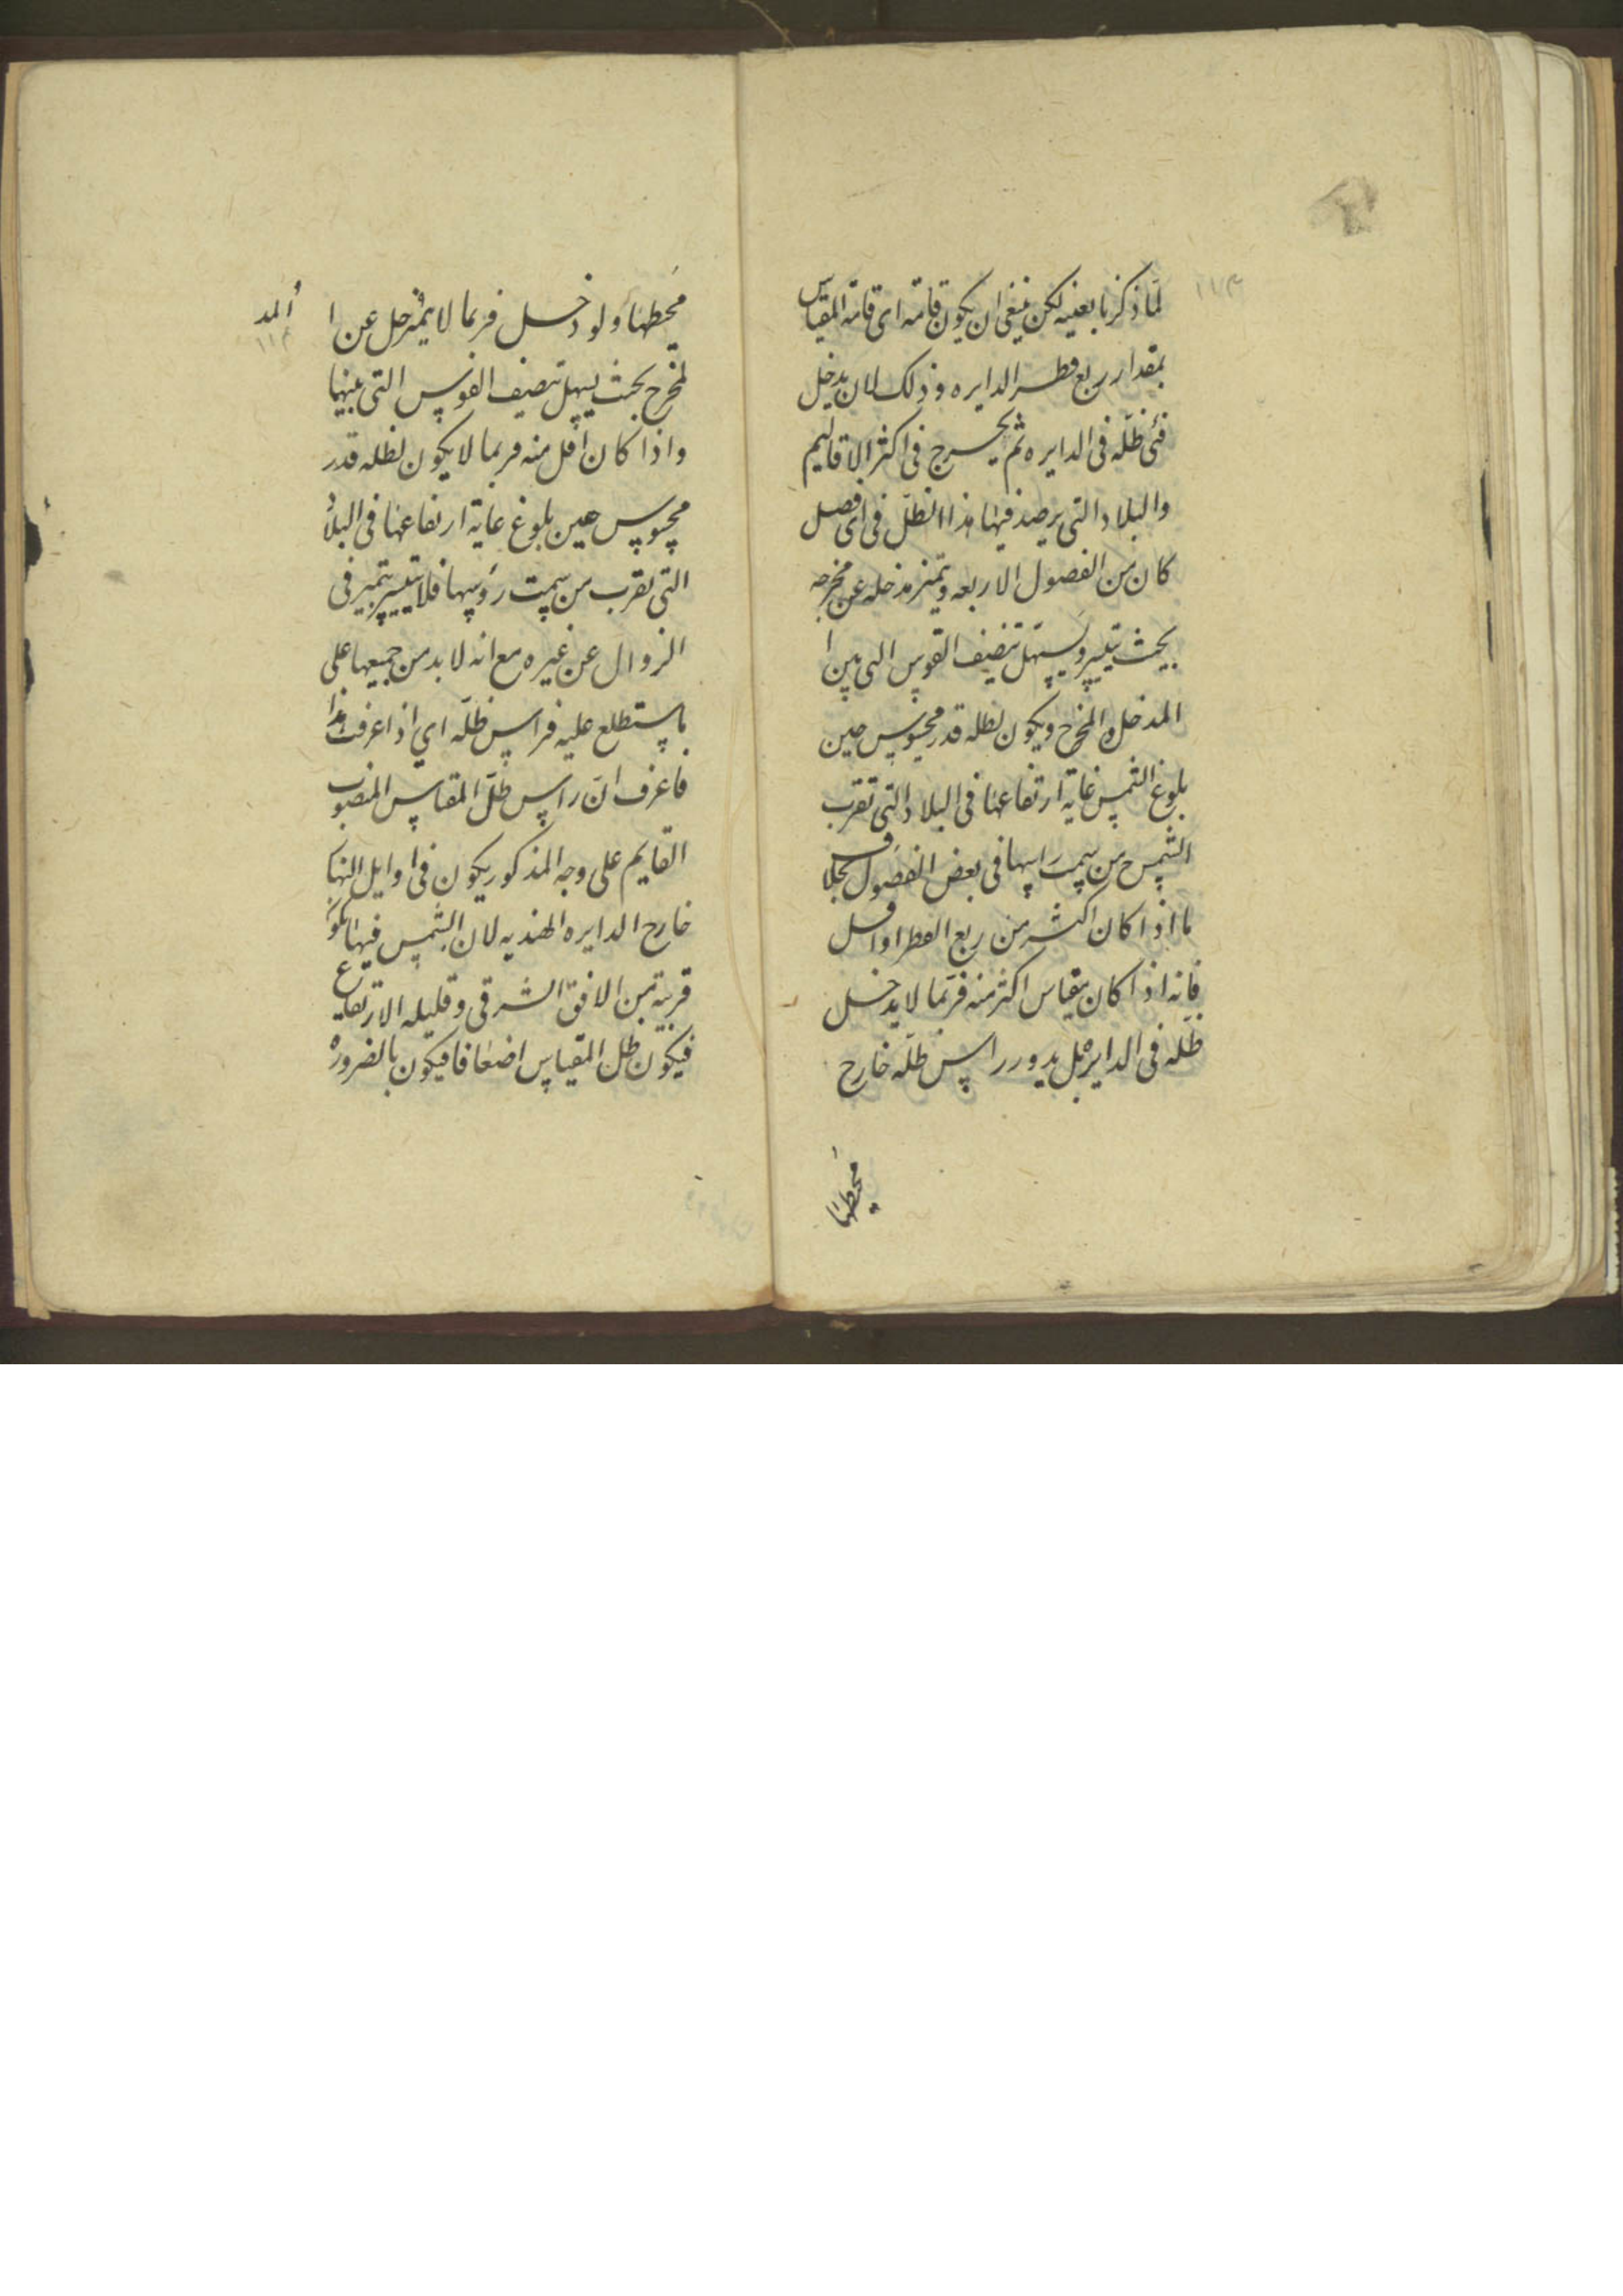 ١١٣
لما ذكرنا بعينه لكن ينبغى ان يكون قامته اى قامة المقياس
بمقدار ربع قطر الدايره و ذلك لان يدخل
فئ ظلّه فى الدايره ثم يخرج فى اكثر الاقاليم
والبلاد التى يرصد فيها هذا الظلّ فى اى فصل
كان من الفصول الاربعه ويتميز مدخله عن مخرجه
بحيث يتيسر ويسهل تنصيف القوس التى بين ا
المدخل والمخرج ويكون لظله قدر محسوس حين
بلوغ الشمس غاية ارتفاعها فى البلاد التى تقرب
الشمس من سمت راسها فى بعض الفصول بخلاف
ما اذا كان اكثر من ربع القطر او اقل
فانه اذا كان مقياس اكثر منه فربما لا يدخل
ظلّه فى الدايره بل يدور راس ظلّه خارج
محيطها
محيطها ولو دخل فربما لا يتميز حل عن ا المد
١١٤
لمخرج بحيث يسهل تنصيف القوس التى بينها
واذا كان اقل منه فربما لا يكون لظله قدر
محسوس حين بلوغ غاية ارتفاعها فى البلاد
التى تقرب من سمت رؤسها فلا يتيسر تميز فى
الزوال عن غيره مع انه لا بد من جميعها على
ما ستطلع عليه فراس ظلّه اي اذا عرفت هذا
فاعرف انّ راس ظلّ المقياس المنصوب
القايم على وجه المذكور يكون فى اوايل النها
خارج الدايره الهنديه لان الشمس فيها يكون
قريبة من الافق الشرقى وقليله الارتفاع
فيكون ظل المقياس اضعافا فيكون بالضروره